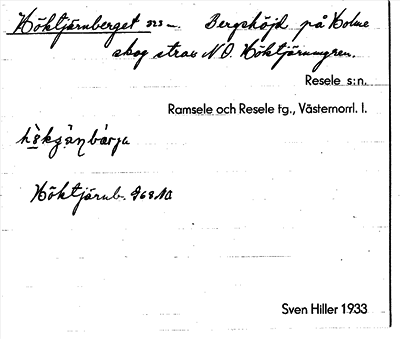 Höktjärnberget 323 –. Bergshöjd på Holme
skog strax N.O. Höktjärnmyren.
Resele s:n.
Ramsele och Resele tg., Västernorrl. l.
Höktjärnb. G68NO
Sven Hiller 1933